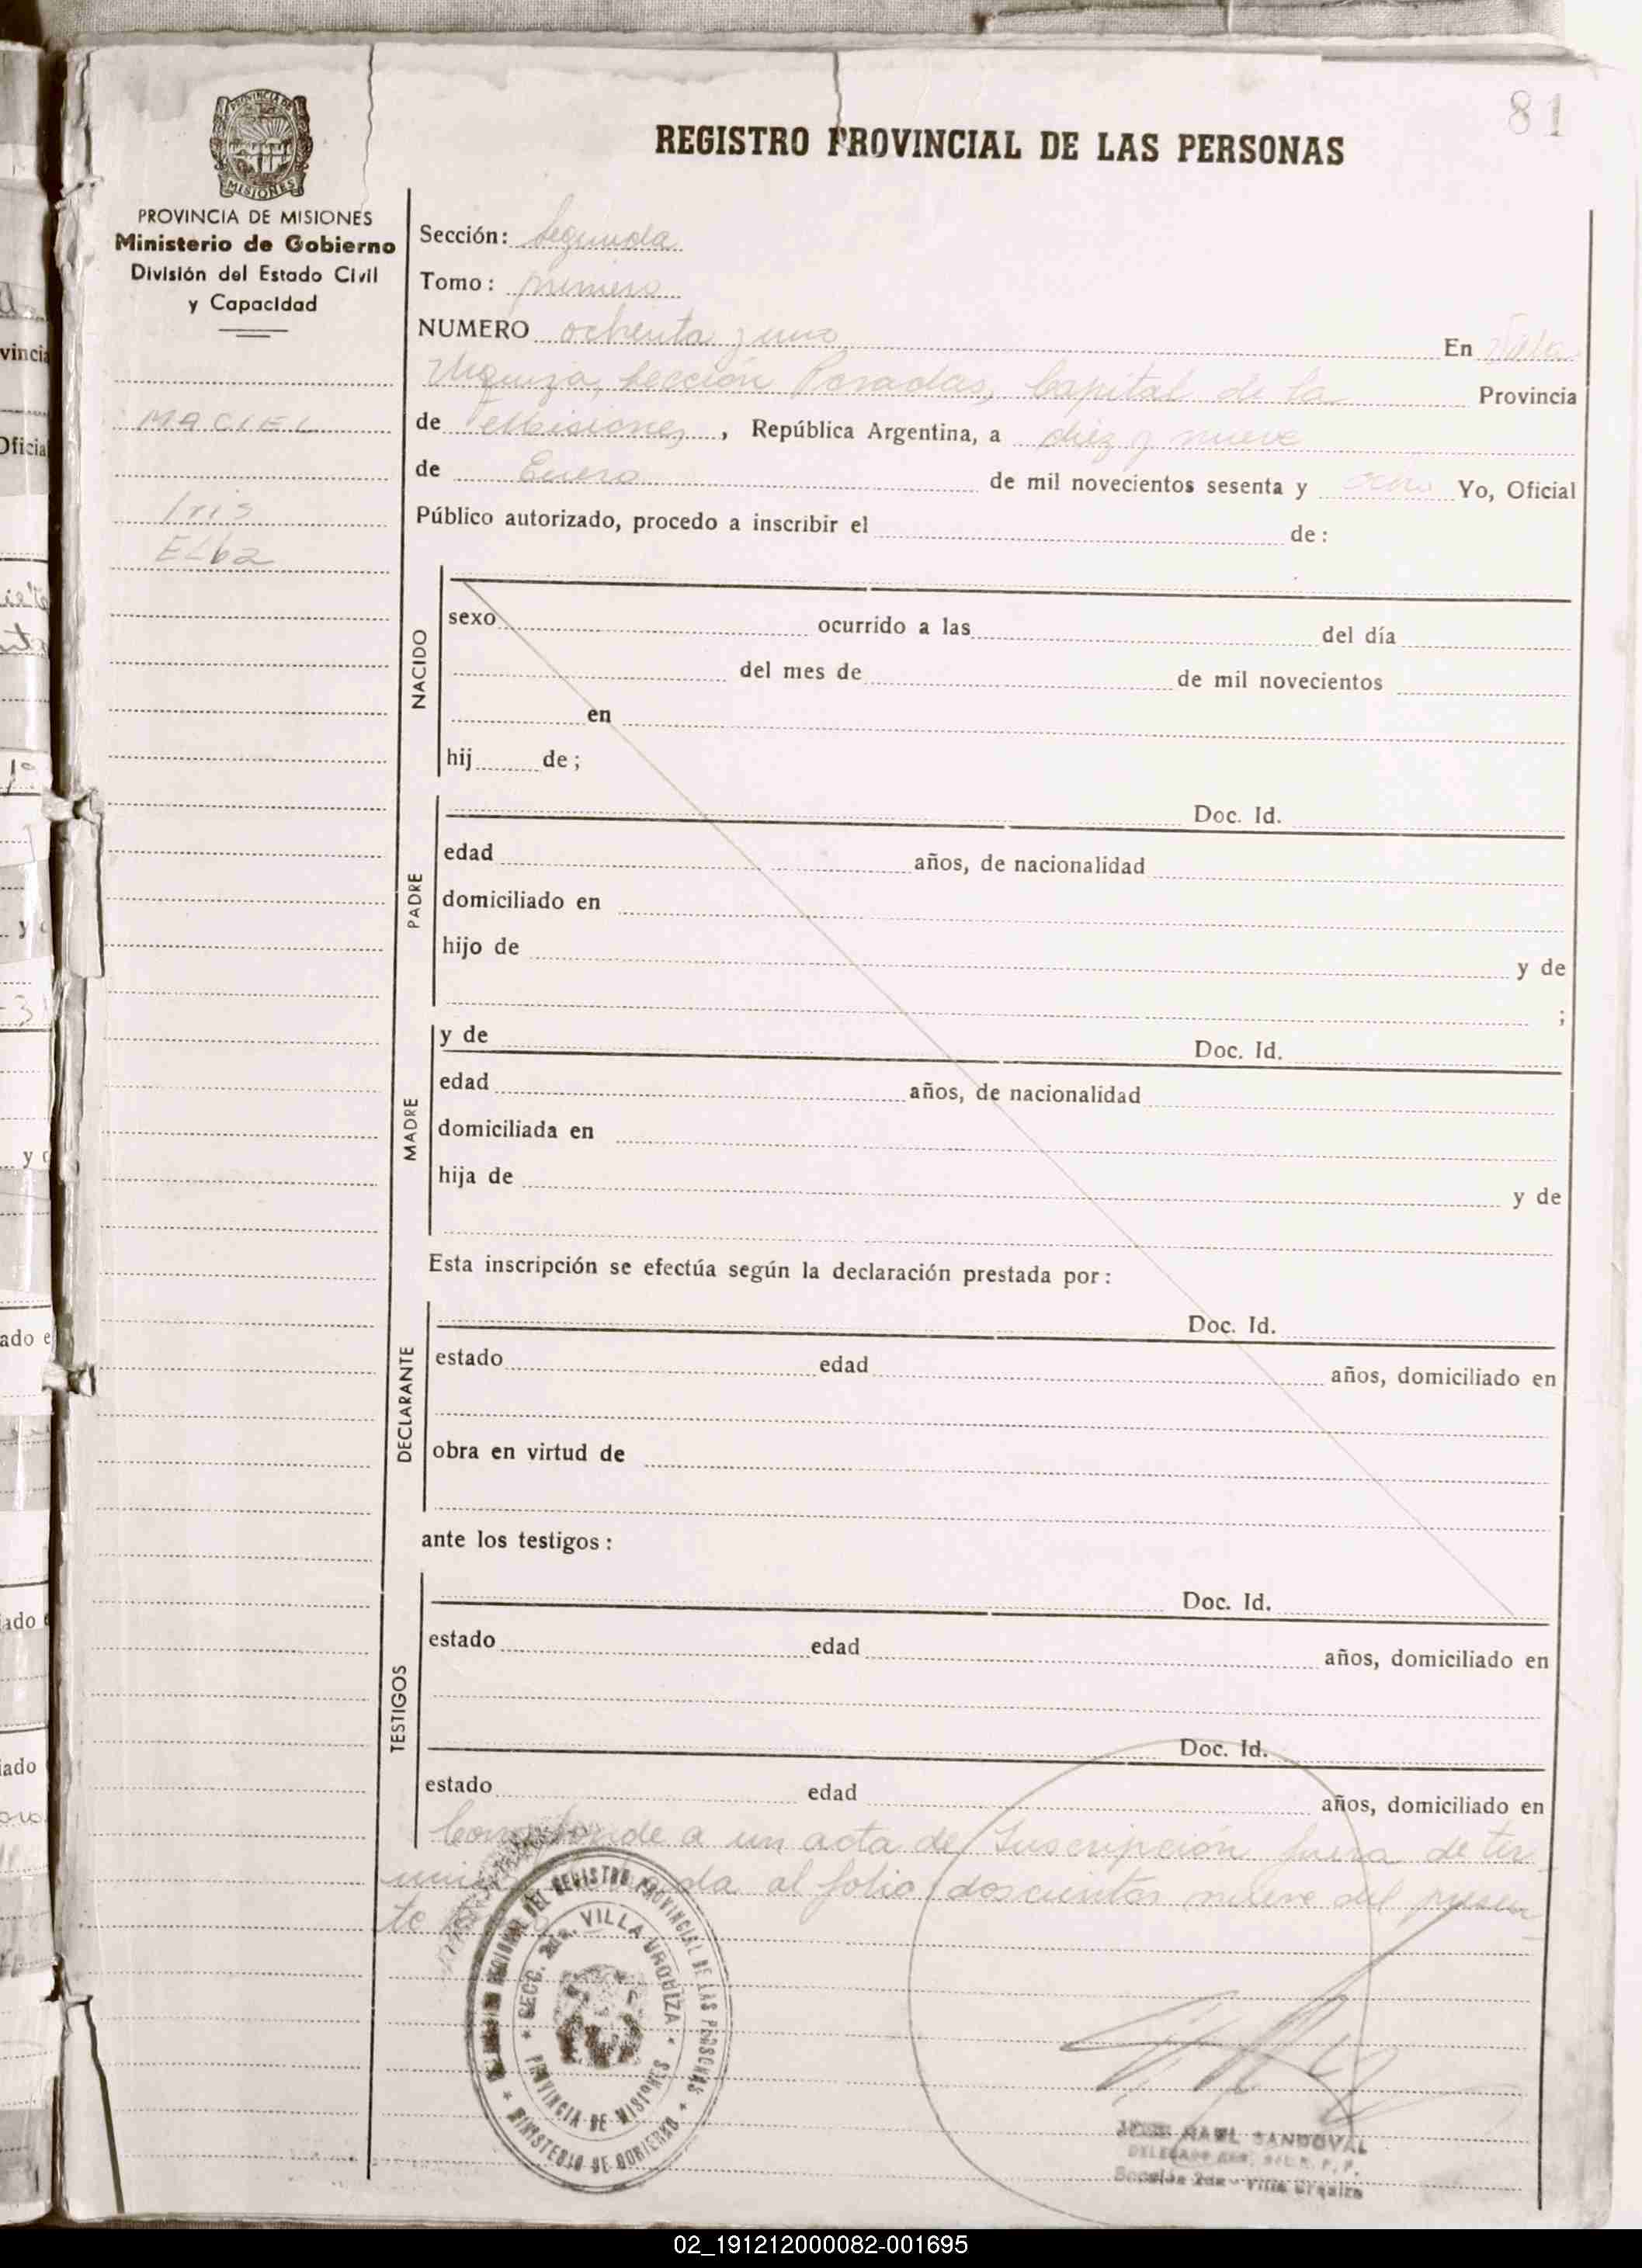 81
REGISTRO PROVINCIAL DE LAS PERSONAS
PROVINCIA DE MISIONES
PROVINCIA DE MISIONES
Ministerio de Gobierno
División del Estado Civil
y Capacidad
MACIEL
Iris
Elba
Sección: Segunda
Tomo: primero
NUMERO ochenta y uno En Villa
Urquiza, Sección Posadas, Capital de la Provincia
de Misiones, República Argentina, a diez y nueve
de Enero de mil novecientos sesenta y ocho Yo, Oficial
Público autorizado, procedo a inscribir el de:
NACIDO
sexo ocurrido a las del día
del mes de de mil novecientos
en
hij de;
PADRE
Doc. Id.
edad años, de nacionalidad
domiciliado en
hijo de y de
;
MADRE
y de Doc. Id.
edad años, de nacionalidad
domiciliada en
hija de y de
Esta inscripción se efectúa según la declaración prestada por:
DECLARANTE
Doc. Id.
estado edad años, domiciliado en
obra en virtud de
ante los testigos:
TESTIGOS
Doc. Id.
estado edad años, domiciliado en
Doc. Id.
estado edad años, domiciliado en
Corresponde a un acta de Inscripción fuera de tér-
mino al folio doscientos nueve del presen-
te
REGIONAL DEL REGISTRO PROVINCIAL DE LAS PERSONAS
MINISTERIO DE GOBIERNO
SECC. 2da. VILLA URQUIZA
PROVINCIA DE MISIONES
RAUL SANDOVAL
DELEGADO R. P. P.
Sección 2da - Villa Urquiza
02_191212000082-001695